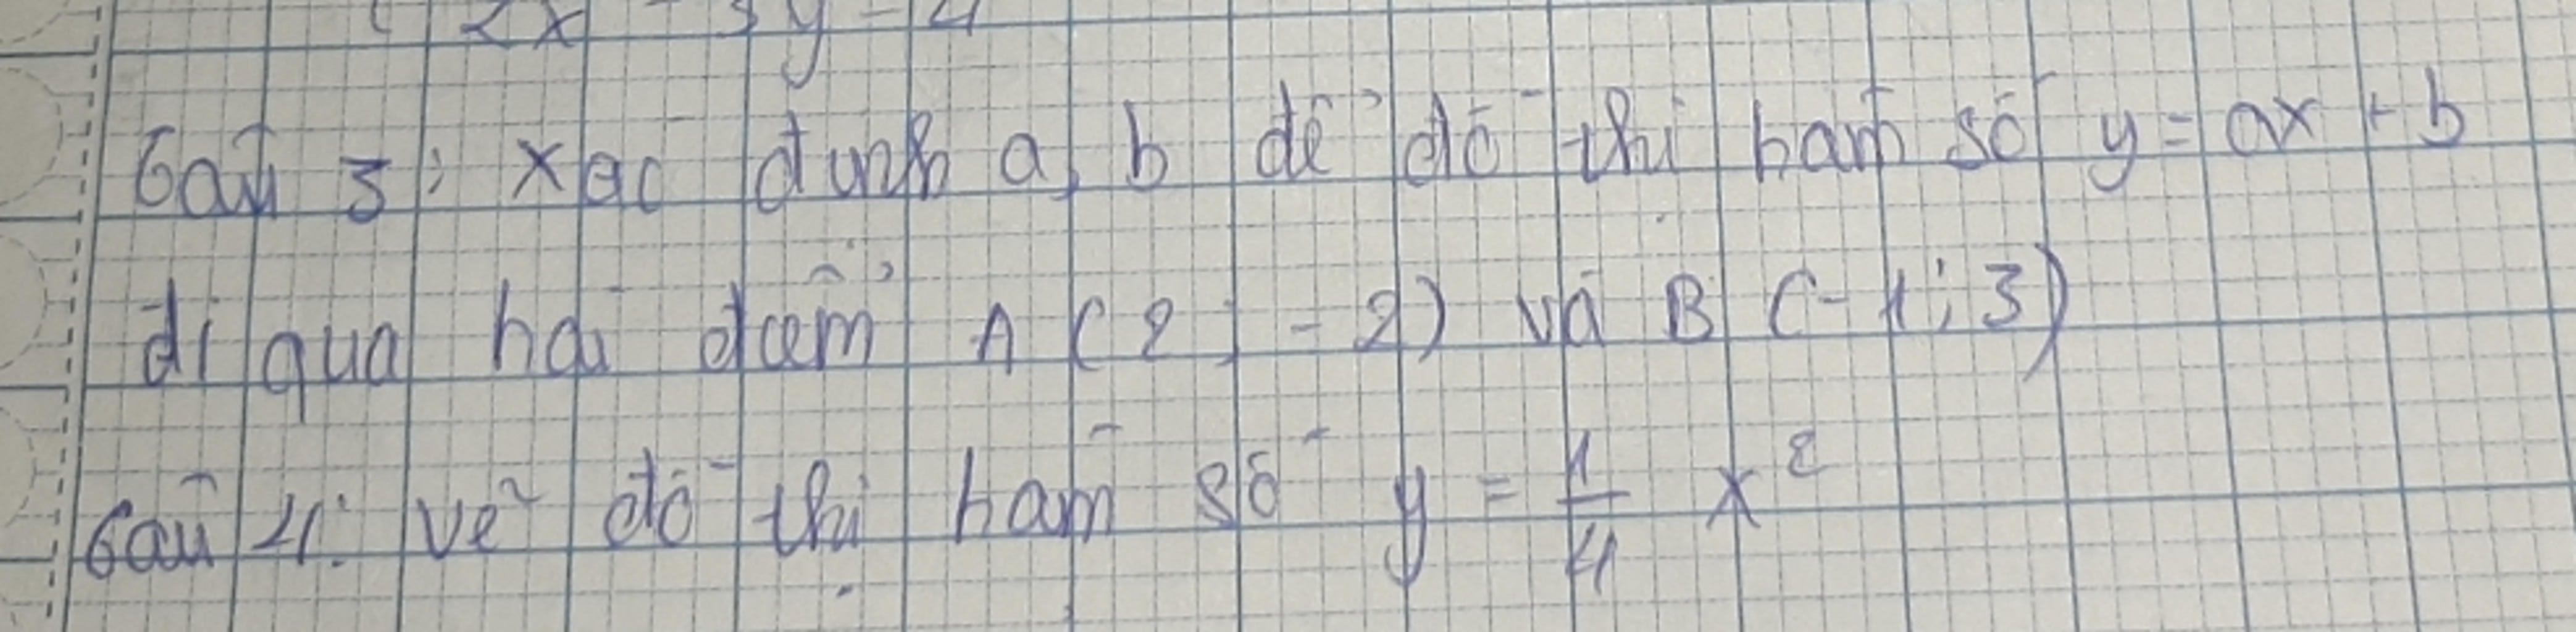 2x - 3y = 4
Câu 3: xác định a, b để đồ thị hàm số y = ax + b
đi qua hai điểm A (2; -2) và B (-1; 3)
Câu 4: vẽ đồ thị hàm số y = 1/4 x²